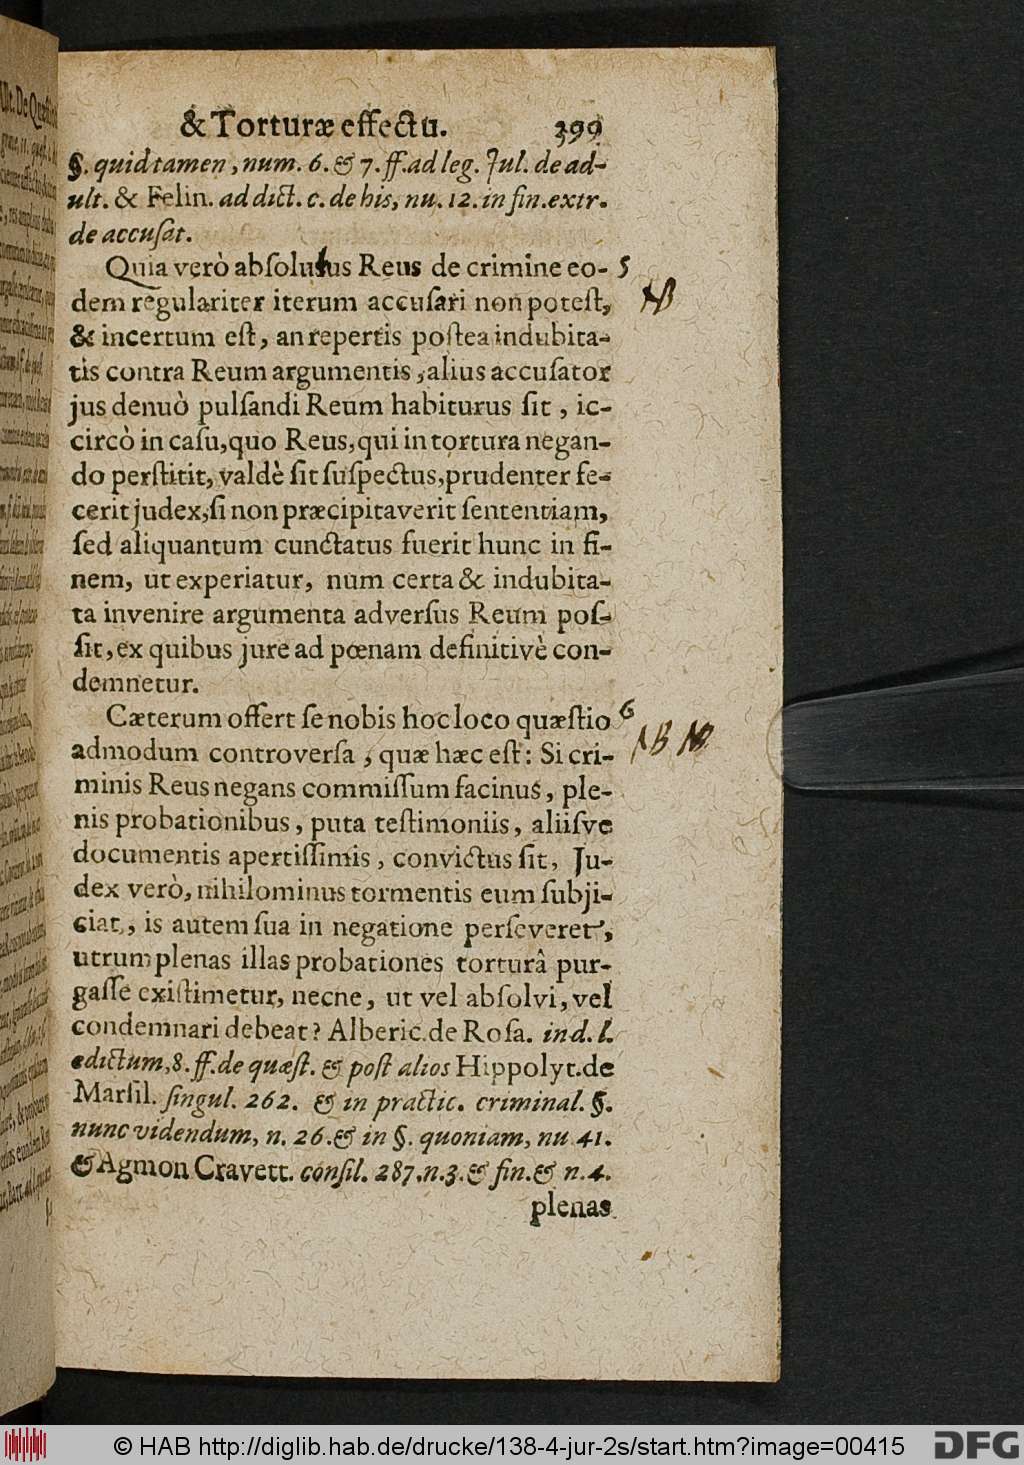 & Torturæ effectu. 399
§. quid tamen, num. 6. & 7. ff. ad leg. Jul. de ad-
ult. & Felin. ad dict. c. de his, nu. 12. in fin. extr.
de accusat.
Quia verò absolutus Reus de crimine eo- 5
dem regulariter iterum accusari non potest, NB
& incertum est, an repertis postea indubita-
tis contra Reum argumentis, alius accusator
jus denuò pulsandi Reum habiturus sit, ic-
circò in casu, quo Reus, qui in tortura negan-
do perstitit, valdè sit suspectus, prudenter fe-
cerit judex, si non præcipitaverit sententiam,
sed aliquantum cunctatus fuerit hunc in fi-
nem, ut experiatur, num certa & indubita-
ta invenire argumenta adversus Reum pos-
sit, ex quibus jure ad pœnam definitivè con-
demnetur.
Cæterum offert se nobis hoc loco quæstio 6
admodum controversa, quæ hæc est: Si cri- NB NB
minis Reus negans commissum facinus, ple-
nis probationibus, puta testimoniis, aliisve
documentis apertissimis, convictus sit, Ju-
dex verò, nihilominus tormentis eum subji-
ciat, is autem sua in negatione perseveret,
utrum plenas illas probationes torturâ pur-
gasse existimetur, necne, ut vel absolvi, vel
condemnari debeat? Alberic. de Rosa. in d. l.
edictum, 8. ff. de quæst. & post alios Hippolyt. de
Marsil. singul. 262. & in practic. criminal. §.
nunc videndum, n. 26. & in §. quoniam, nu 41.
& Agmon Cravett. consil. 287. n. 3. & fin. & n. 4.
plenas
© HAB http://diglib.hab.de/drucke/138-4-jur-2s/start.htm?image=00415
DFG